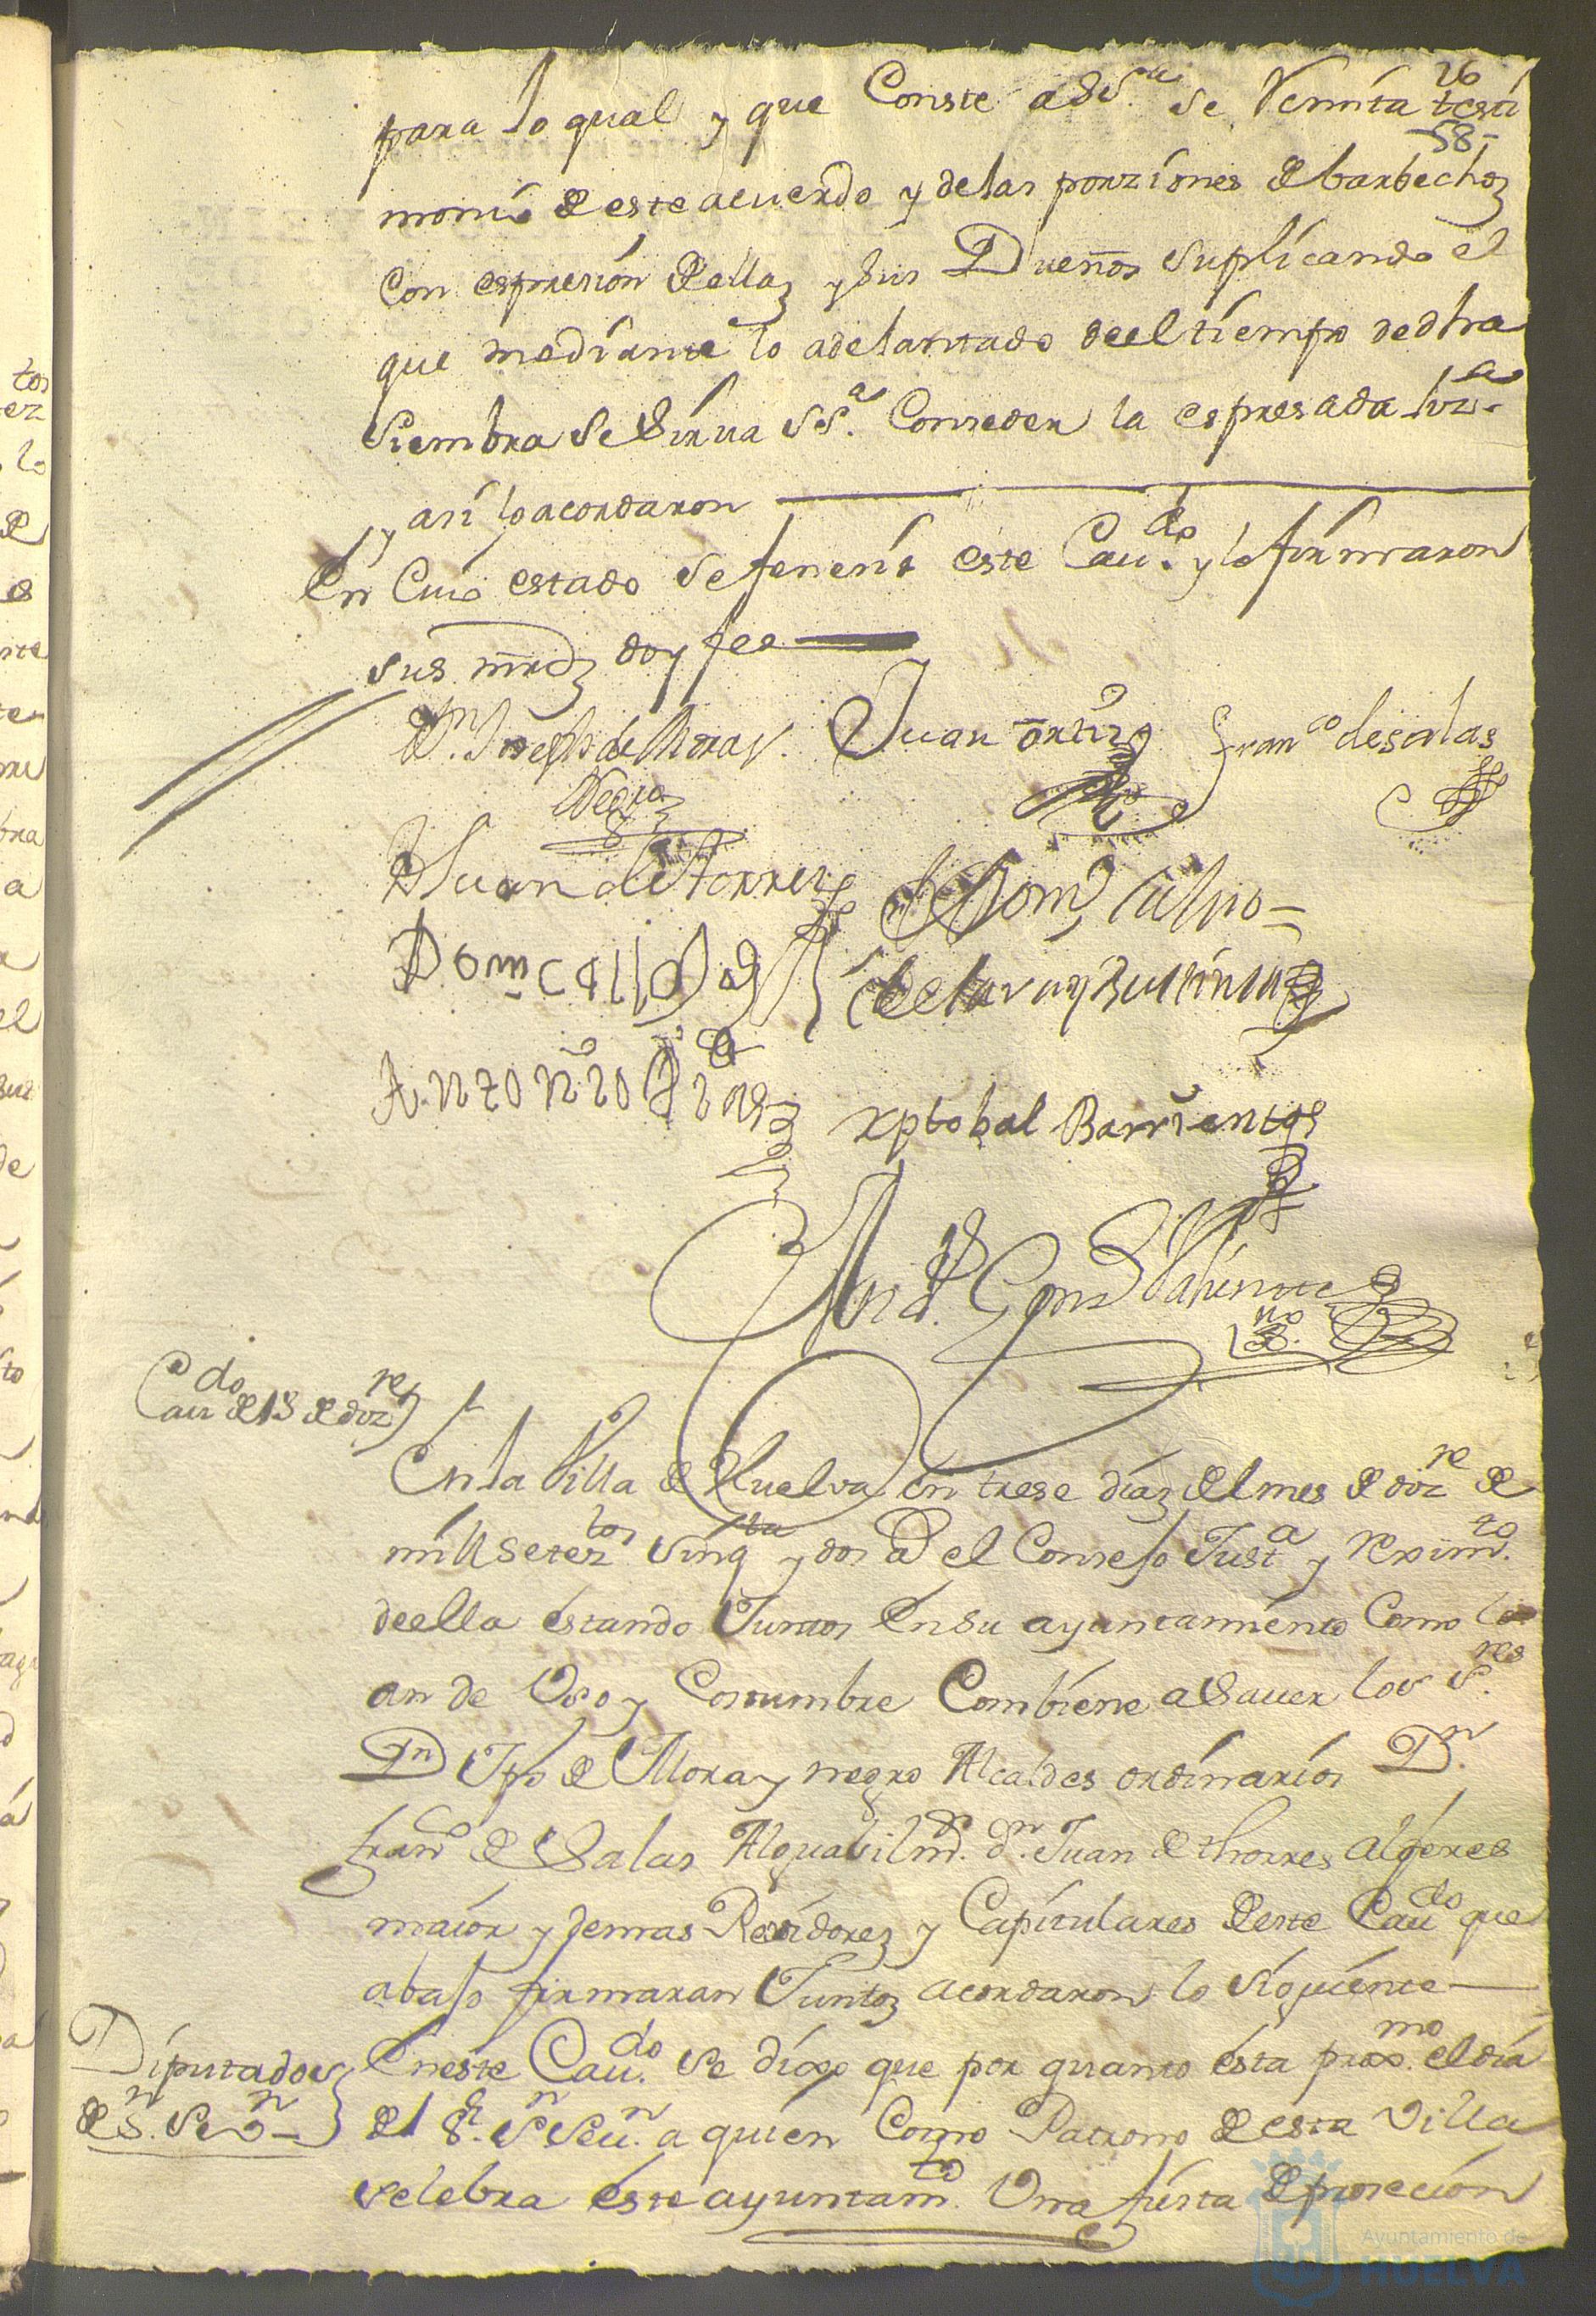 26
para lo qual y que Conste a SSª se Remita testi
58-
monio de este acuerdo y de las porziones de barbechos
con espresion de ellas y sus Dueños suplicando el
que mediante lo adelantado de el tiempo de dha
siembra se sirva SSª Conseder la espresada lizª
y asi lo acordaron
En Cuio estado se fenenio este Cauᵈᵒ y lo firmaron
sus mrds doy fee
Dn Joseph de Mora y
Negro
Juan ortiz
Franᶜᵒ de salas
Juan de torres
Domᵒ Calvo
Antonio Dias
xptobal Barrientos
Andˢ Gonz Valiente
Cauᵈᵒ de 13 de dizʳᵉ
En la Villa de Huelva en trese dias del mes de dizʳᵉ de
mill setezᵗᵒˢ vinqᵗᵃ y dos aˢ el Consejo Justª y reximᵗᵒ
de ella estando Juntos en su ayuntamiento Como lo
an de Uso y Costumbre Combiene a Saver los Sʳᵉˢ
Dn Jph de Mora y negro Alcaldes ordinarios Dⁿ
franᶜᵒ de Salas Alguasil mʳ dⁿ Juan de thorres alferes
maior y demas Residores y Capitulares de este Cauᵈᵒ que
abajo firmaran Juntos acordaron lo siguiente
Diputados
de Sⁿ Sevⁿ
En este Cauᵈᵒ se dixo que por quanto esta proxᵐᵒ el dia
del Sʳ Sⁿ Seuⁿ a quien Como Patrono de esta Villa
selebra este ayuntamᵗᵒ Una fiesta de prosecion
Ayuntamiento de
HUELVA